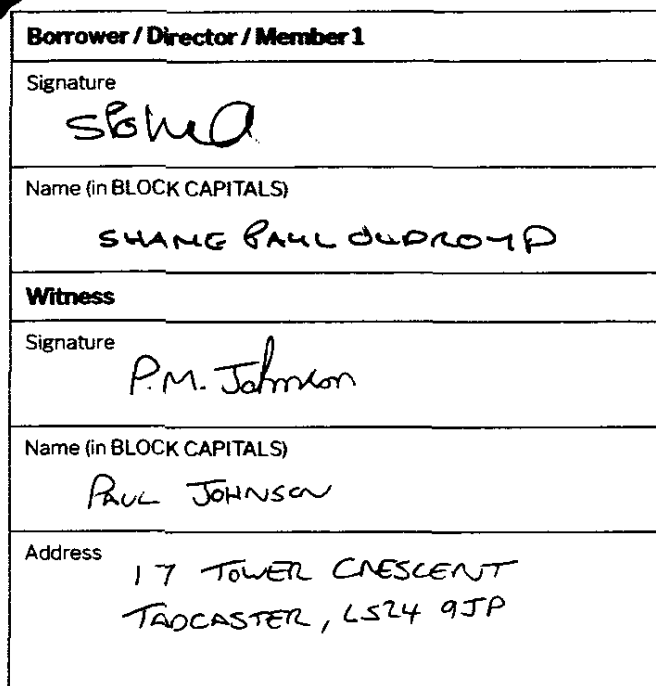 Borrower / Director / Member 1
Signature
Name (in BLOCK CAPITALS)
SHANE PAUL OLDROYD
Witness
Signature
P.M. Johnson
Name (in BLOCK CAPITALS)
PAUL JOHNSON
Address
17 TOWER CRESCENT
TADCASTER, LS24 9JP